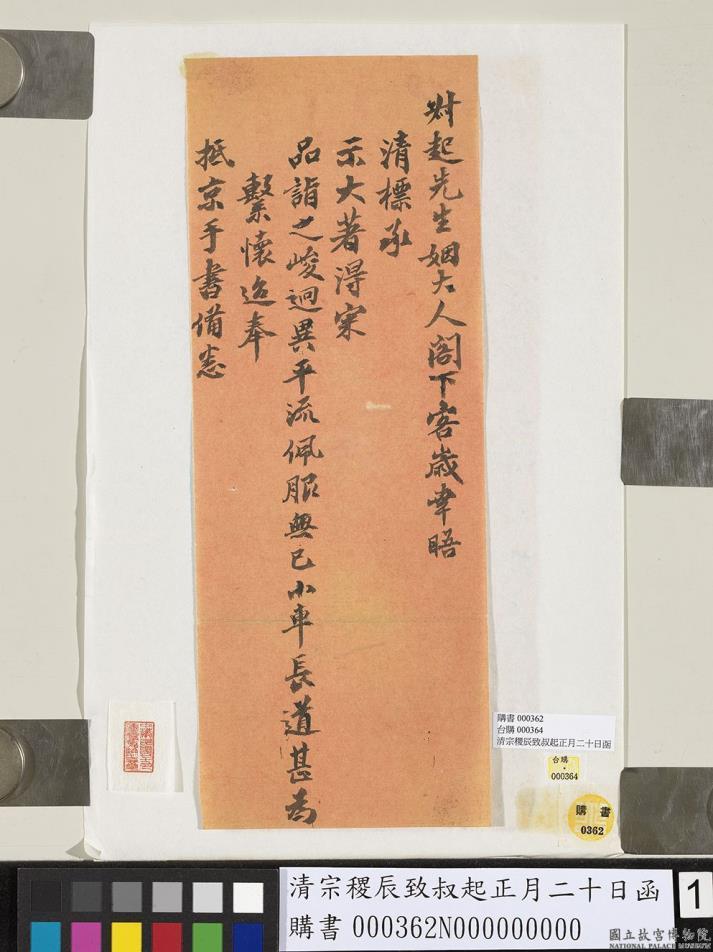 尗起先生姻大人阁下客歲幸晤
清標承
示大著淂寀
品詣之峻迥異平流佩服無已小車長道甚为
繫懷迨奉
抵京手書備悉
購書 000362
台購 000364
清宗稷辰致叔起正月二十日函
台購
000364
購 書
0362
清宗稷辰致叔起正月二十日函
購書 000362N000000000
1
國立故宮博物院
NATIONAL PALACE MUSEUM